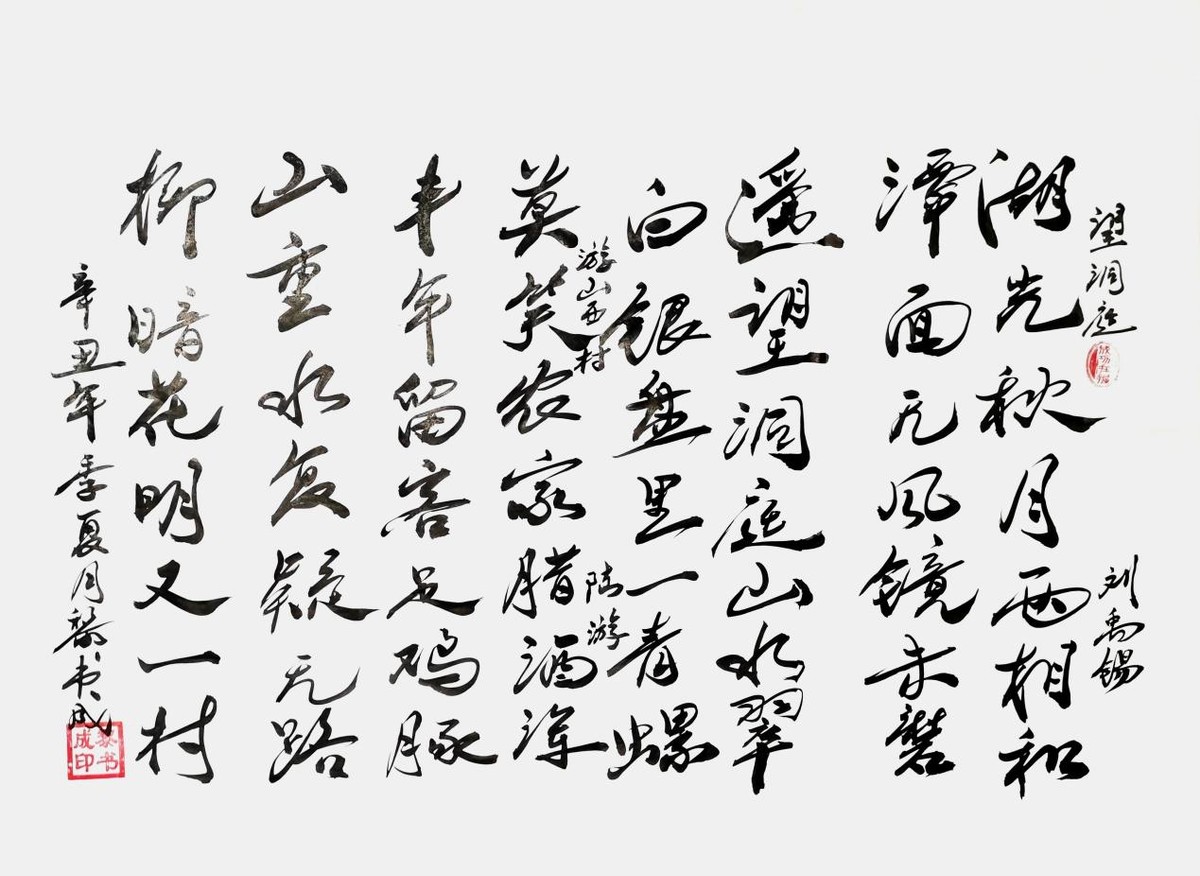 望洞庭 刘禹锡
湖光秋月两相和
潭面无风镜未磨
遥望洞庭山水翠
白银盘里一青螺
游山西村 陆游
莫笑农家腊酒浑
丰年留客足鸡豚
山重水复疑无路
柳暗花明又一村
辛丑年季夏月黎书成
黎书成印